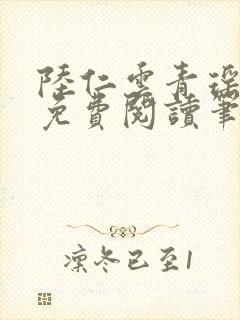 陸仁雲青瑤
免費閱讀筆
凜冬已至1